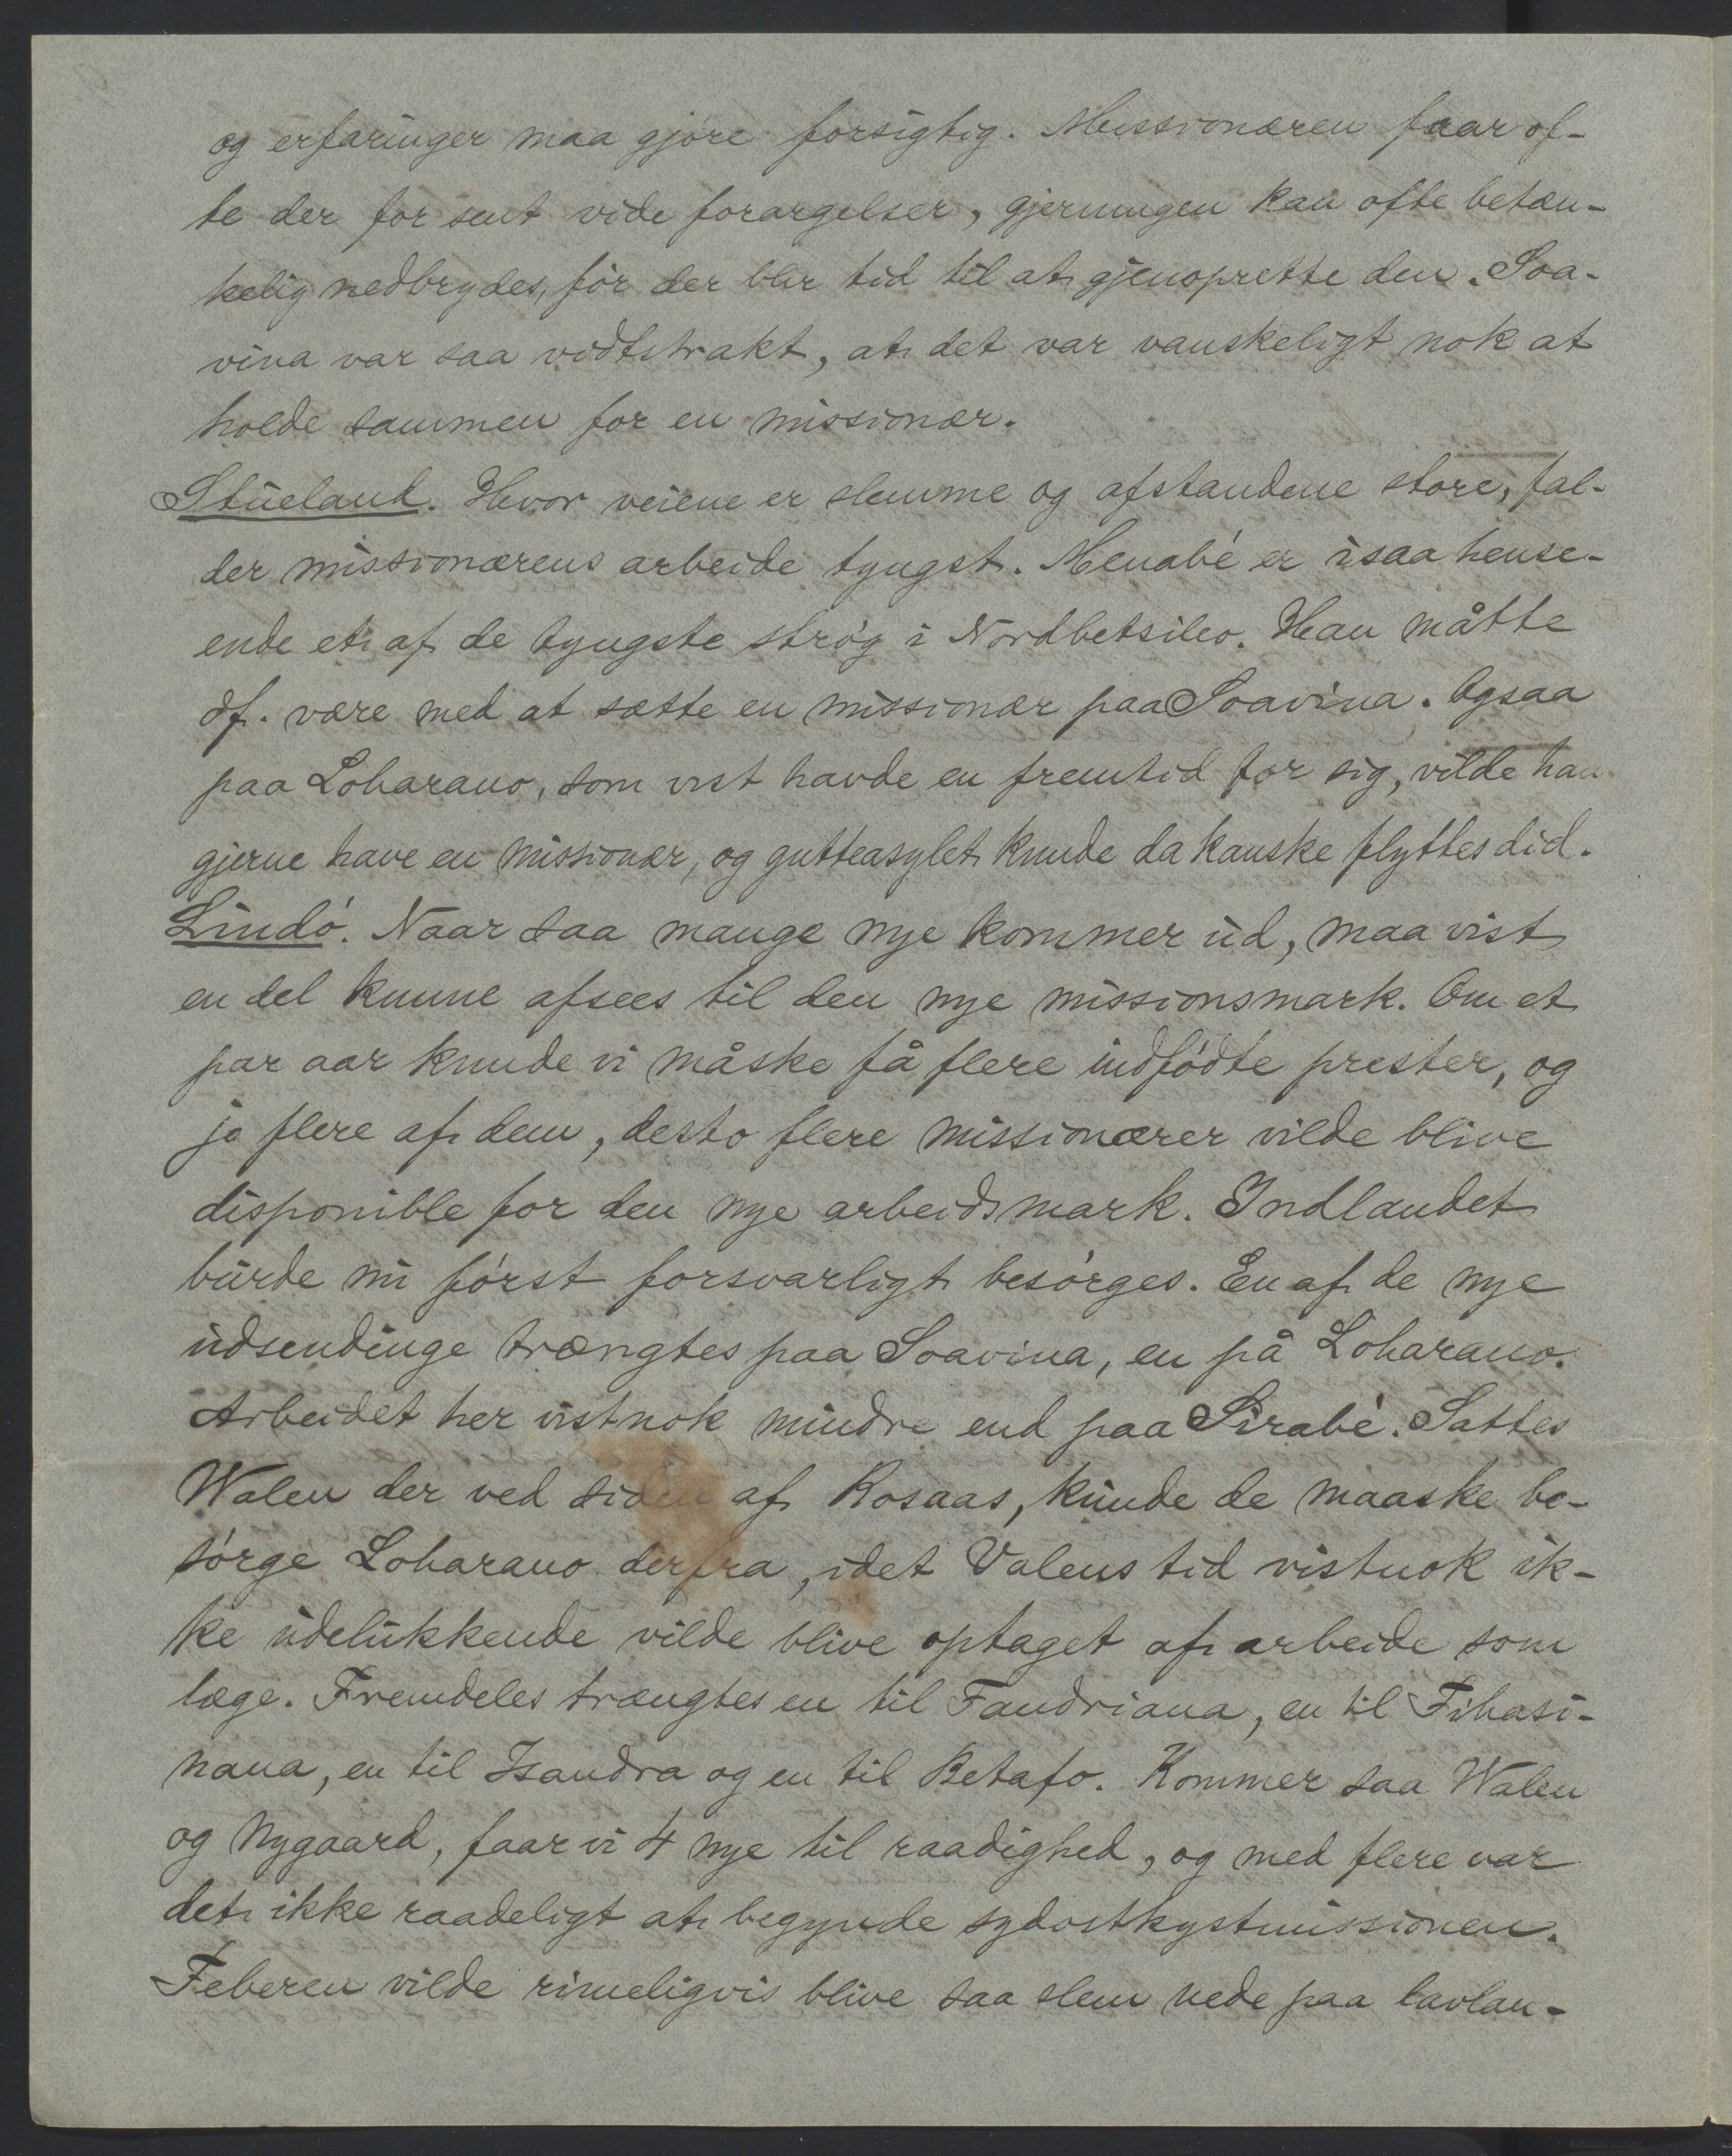 og erfaringer maa gjøre forsigtig. Missionæren faar of-
te der for sent vide forargelser, gjerningen kan ofte betæn-
kelig nedbrydes, før der blir tid til at gjenoprette den. Soa-
vina var saa vidtstrakt, at det var vanskeligt nok at
holde sammen for en missionær.
Stueland. Hvor veiene er slemme og afstandene store, fal-
der missionærens arbeide tyngst. Menabé er i saa hense-
ende et af de tyngste strøg i Nordbetsileo. Han måtte
df. være med at sætte en missionær paa Soavina. Ogsaa
paa Loharano, som vist havde en fremtid for sig, vilde han
gjerne have en missionær, og gutteasylet kunde da kanske flyttes did.
Lindø. Naar saa mange nye kommer ud, maa vist
en del kunne afsees til den nye missionsmark. Om et
par aar kunde vi måske få flere indfødte prester, og
jo flere af dem, desto flere missionærer vilde blive
disponible for den nye arbeidsmark. Indlandet
burde nu først forsvarligt besørges. En af de nye
udsendinge trængtes paa Soavina, en på Loharano.
Arbeidet her vistnok mindre end paa Sirabé. Sattes
Walen der ved siden af Rosaas, kunde de maaske be-
sørge Loharano derfra, idet Valens tid vistnok ik-
ke udelukkende vilde blive optaget af arbeide som
læge. Fremdeles trængtes en til Fandriana, en til Fihasi-
nana, en til Isandra og en til Betafo. Kommer saa Walen
og Nygaard, faar vi 4 nye til raadighed, og med flere var
det ikke raadeligt at begynde sydostkystmissionen.
Feberen vilde rimeligvis blive saa slem nede paa lavlan-